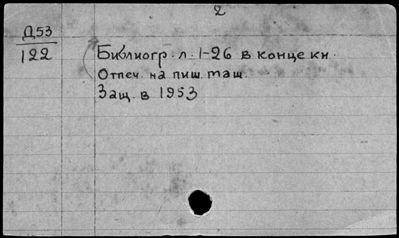 2
Д53
122
Библиогр. л. 1-26 в конце кн.
Отпеч. на пиш. маш.
Защ. в 1953